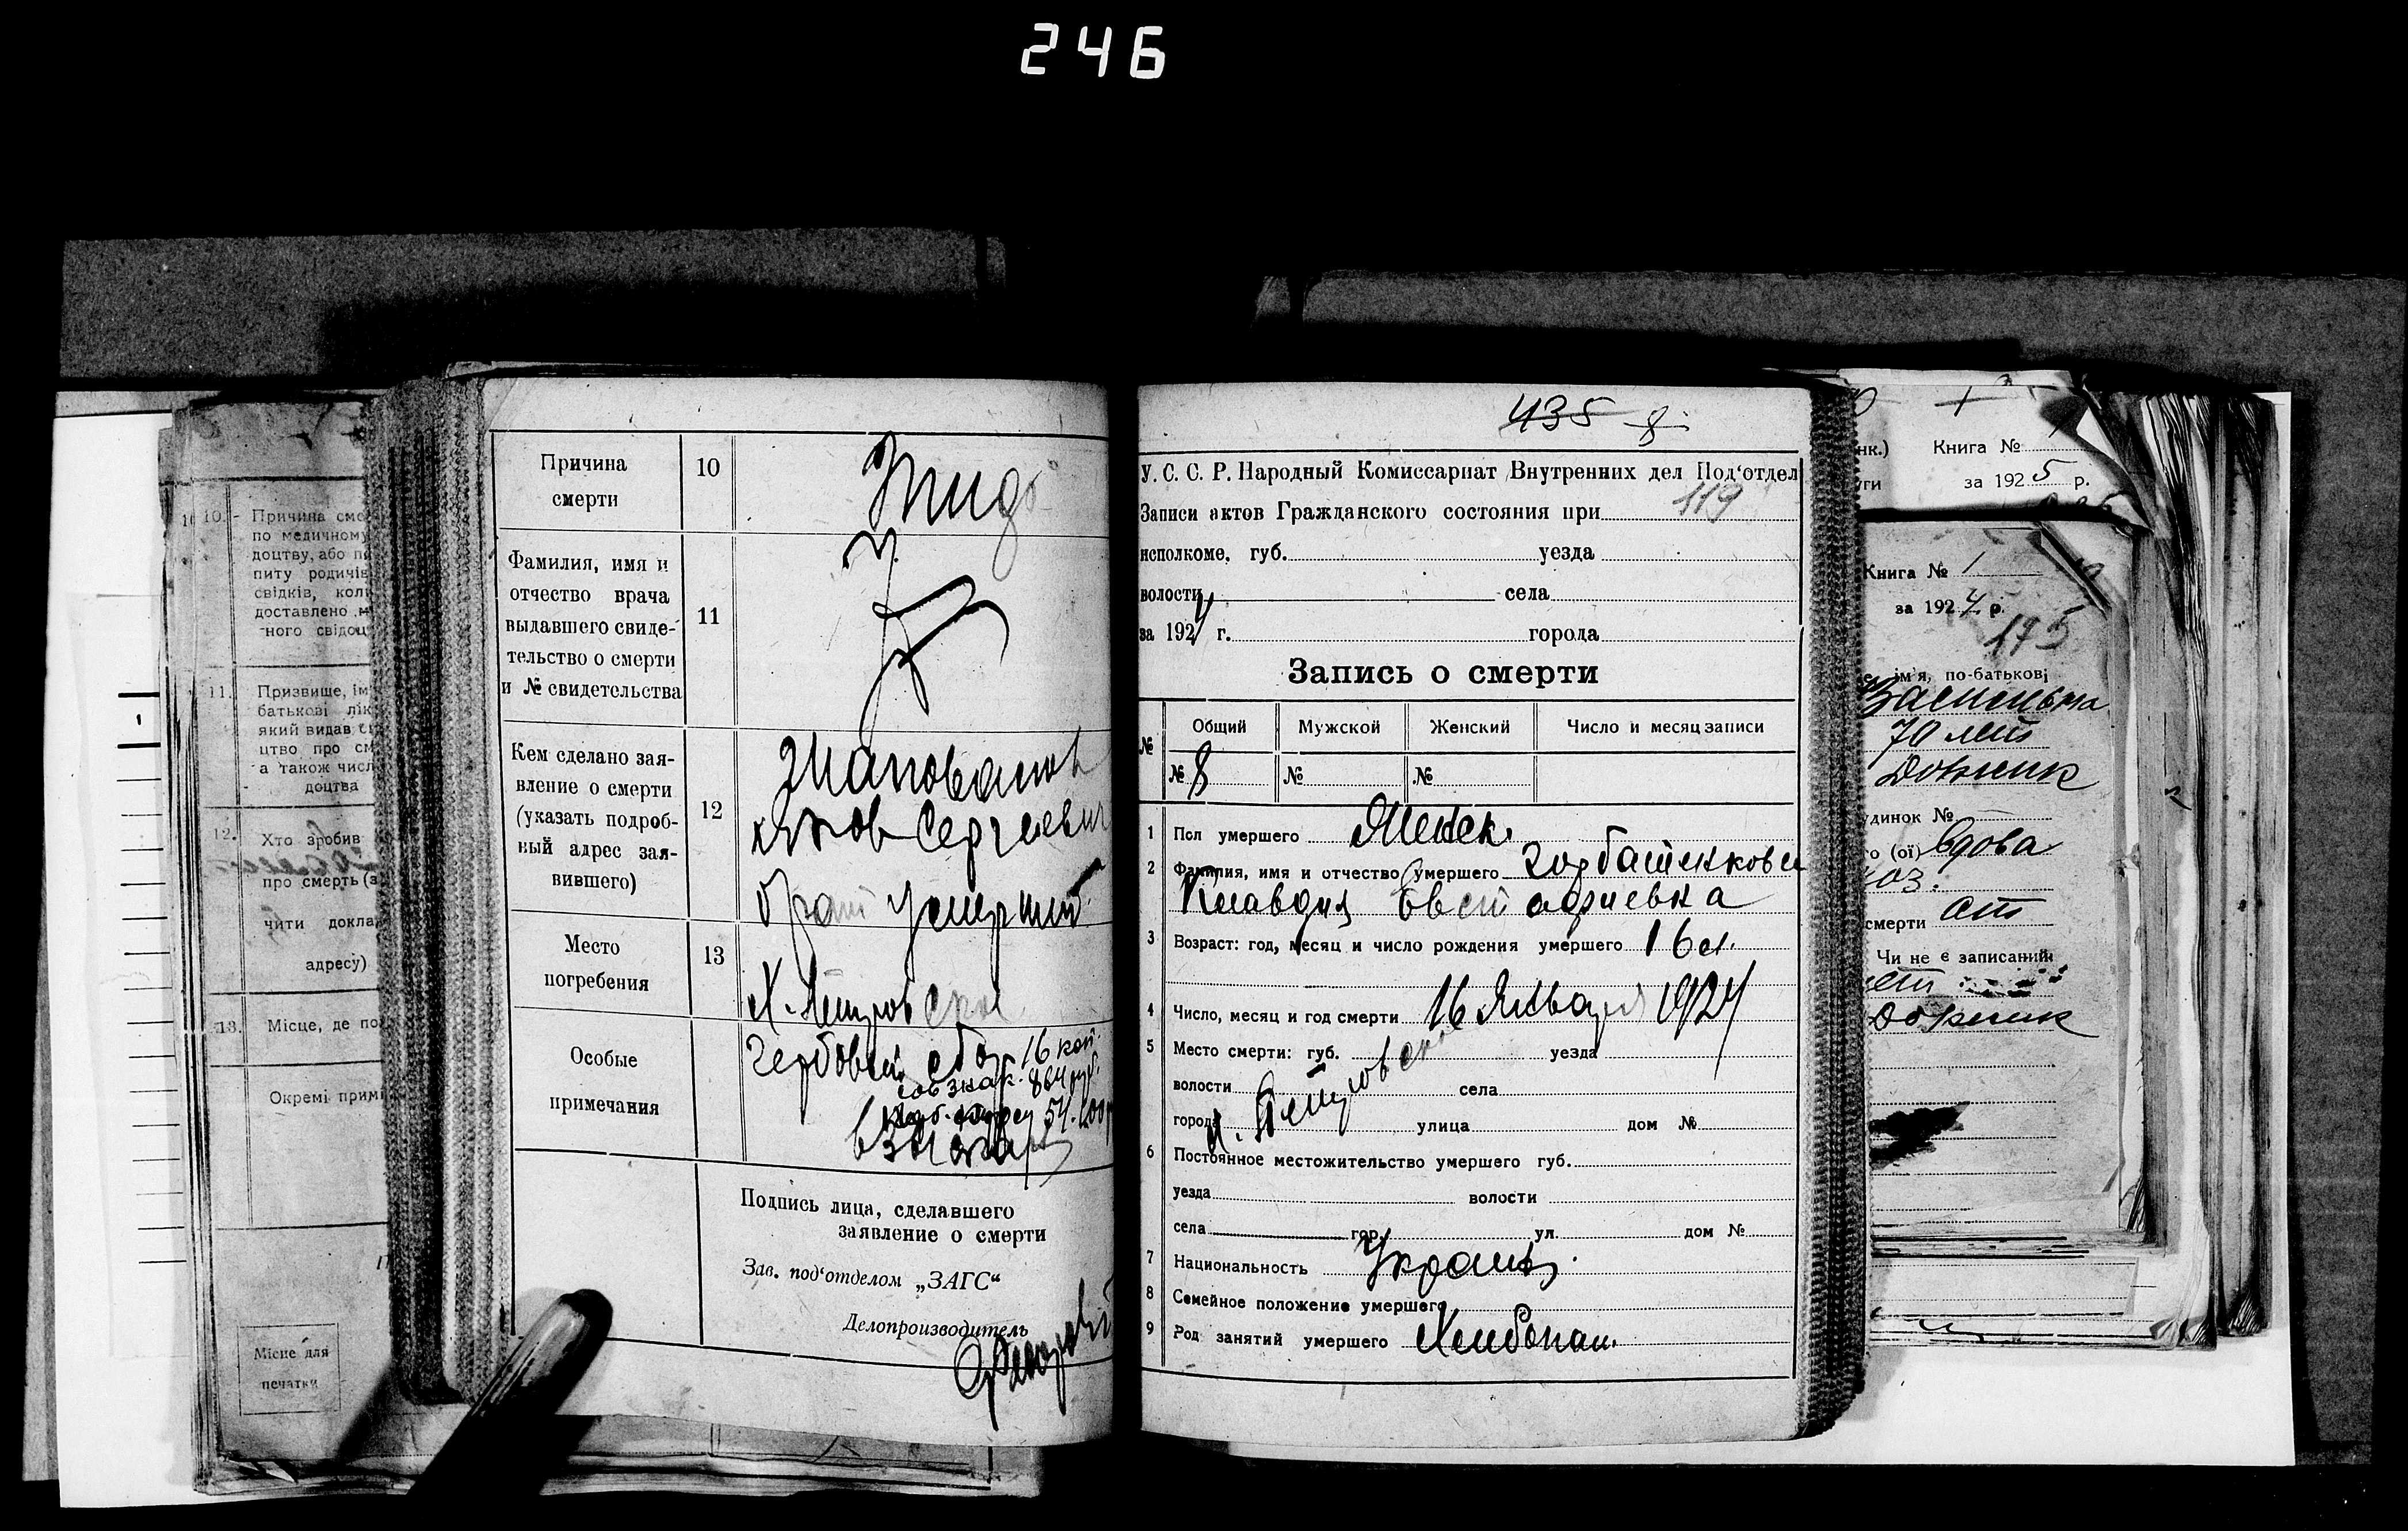 246
10.
Причина сме
по медичному
доцтву, або п
питу родичів
свідків, кол
доставлено м
ного свідоц
11.
Призвище, ім
батькові лік
який видав с
цтво про см
а також числ
доцтва
12.
Хто зробив
про смерть (з
чити докла
адресу)
13.
Місце, де по
Окремі прим
Місце для
печатки
Причина
смерти
10
Фамилия, имя и
отчество врача
выдавшего свиде-
тельство о смерти
и № свидетельства
11
Кем сделано зая-
вление о смерти
(указать подроб-
ный адрес зая-
вившего)
12
Шаповалов
Яков Сергиевич
брат умерший
Место
погребения
13
Х. Петровский
Особые
примечания
Гербовый сбор 16 коп.
совзнак. 864 руб.
54.000
взыскан
Подпись лица, сделавшего
заявление о смерти
Зав. под'отделом „ЗАГС“
Делопроизводитель
435 8
У. С. С. Р. Народный Комиссариат Внутренних дел Под'отдел
119
Записи актов Гражданского состояния при
исполкоме, губ. уезда
волости села
за 1924 г. города
Запись о смерти
№ Общий Мужской Женский Число и месяц записи
№ 8 № №
1 Пол умершего Женск.
2 Фамилия, имя и отчество умершего Горбатенкова
Клавдия Евстафиевна
3 Возраст: год, месяц и число рождения умершего 16 л.
4 Число, месяц и год смерти 16 Января 1924
5 Место смерти: губ. уезда
волости села
города х. Петровский улица дом №
6 Постоянное местожительство умершего губ.
уезда волости
села гор. ул. дом №
7 Национальность Украин.
8 Семейное положение умершего
9 Род занятий умершего Хлебопаш.
нк.) Книга №
уги за 1925 р.
Книга № 1
за 1924 р.
175
ім'я, по-батькові
70 лет
удинок №
о (ої) вдова
смерти
Чи не є записаний